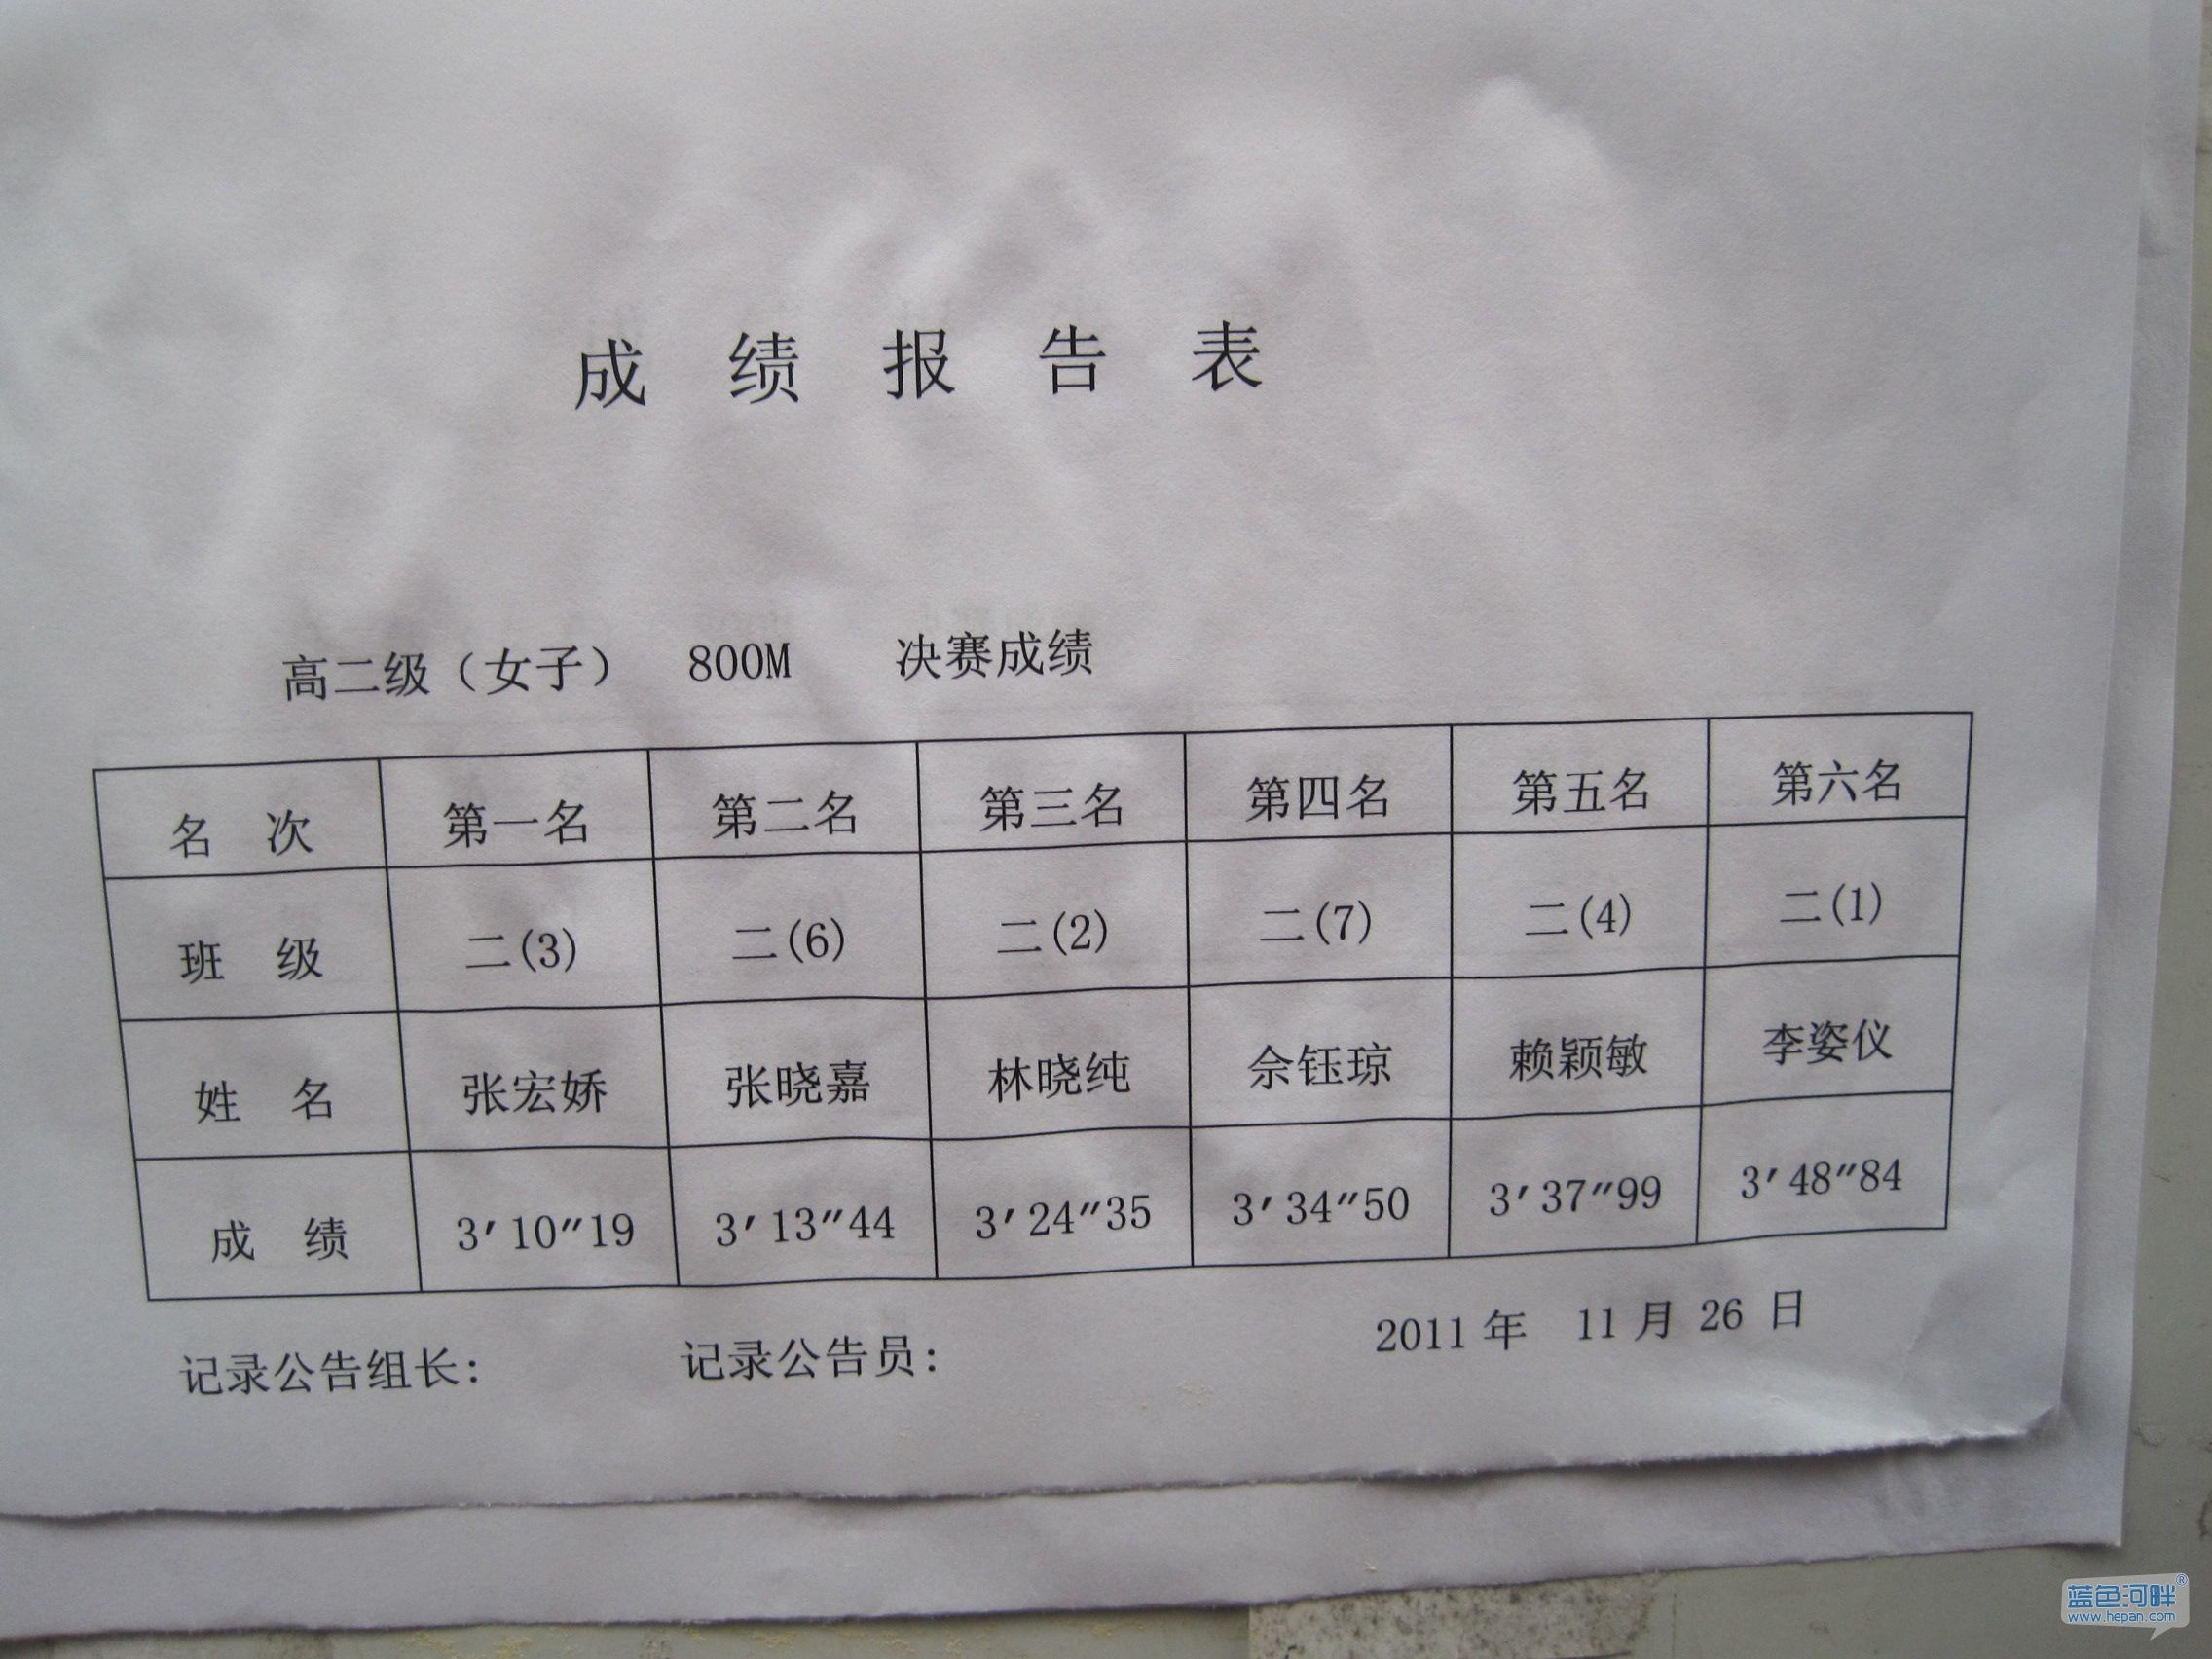 成 绩 报 告 表
高二级（女子） 800M 决赛成绩
名 次 第一名 第二名 第三名 第四名 第五名 第六名
班 级 二(3) 二(6) 二(2) 二(7) 二(4) 二(1)
姓 名 张宏娇 张晓嘉 林晓纯 佘钰琼 赖颖敏 李姿仪
成 绩 3′10″19 3′13″44 3′24″35 3′34″50 3′37″99 3′48″84
记录公告组长： 记录公告员： 2011 年 11 月 26 日
蓝色河畔®
www.hepan.com